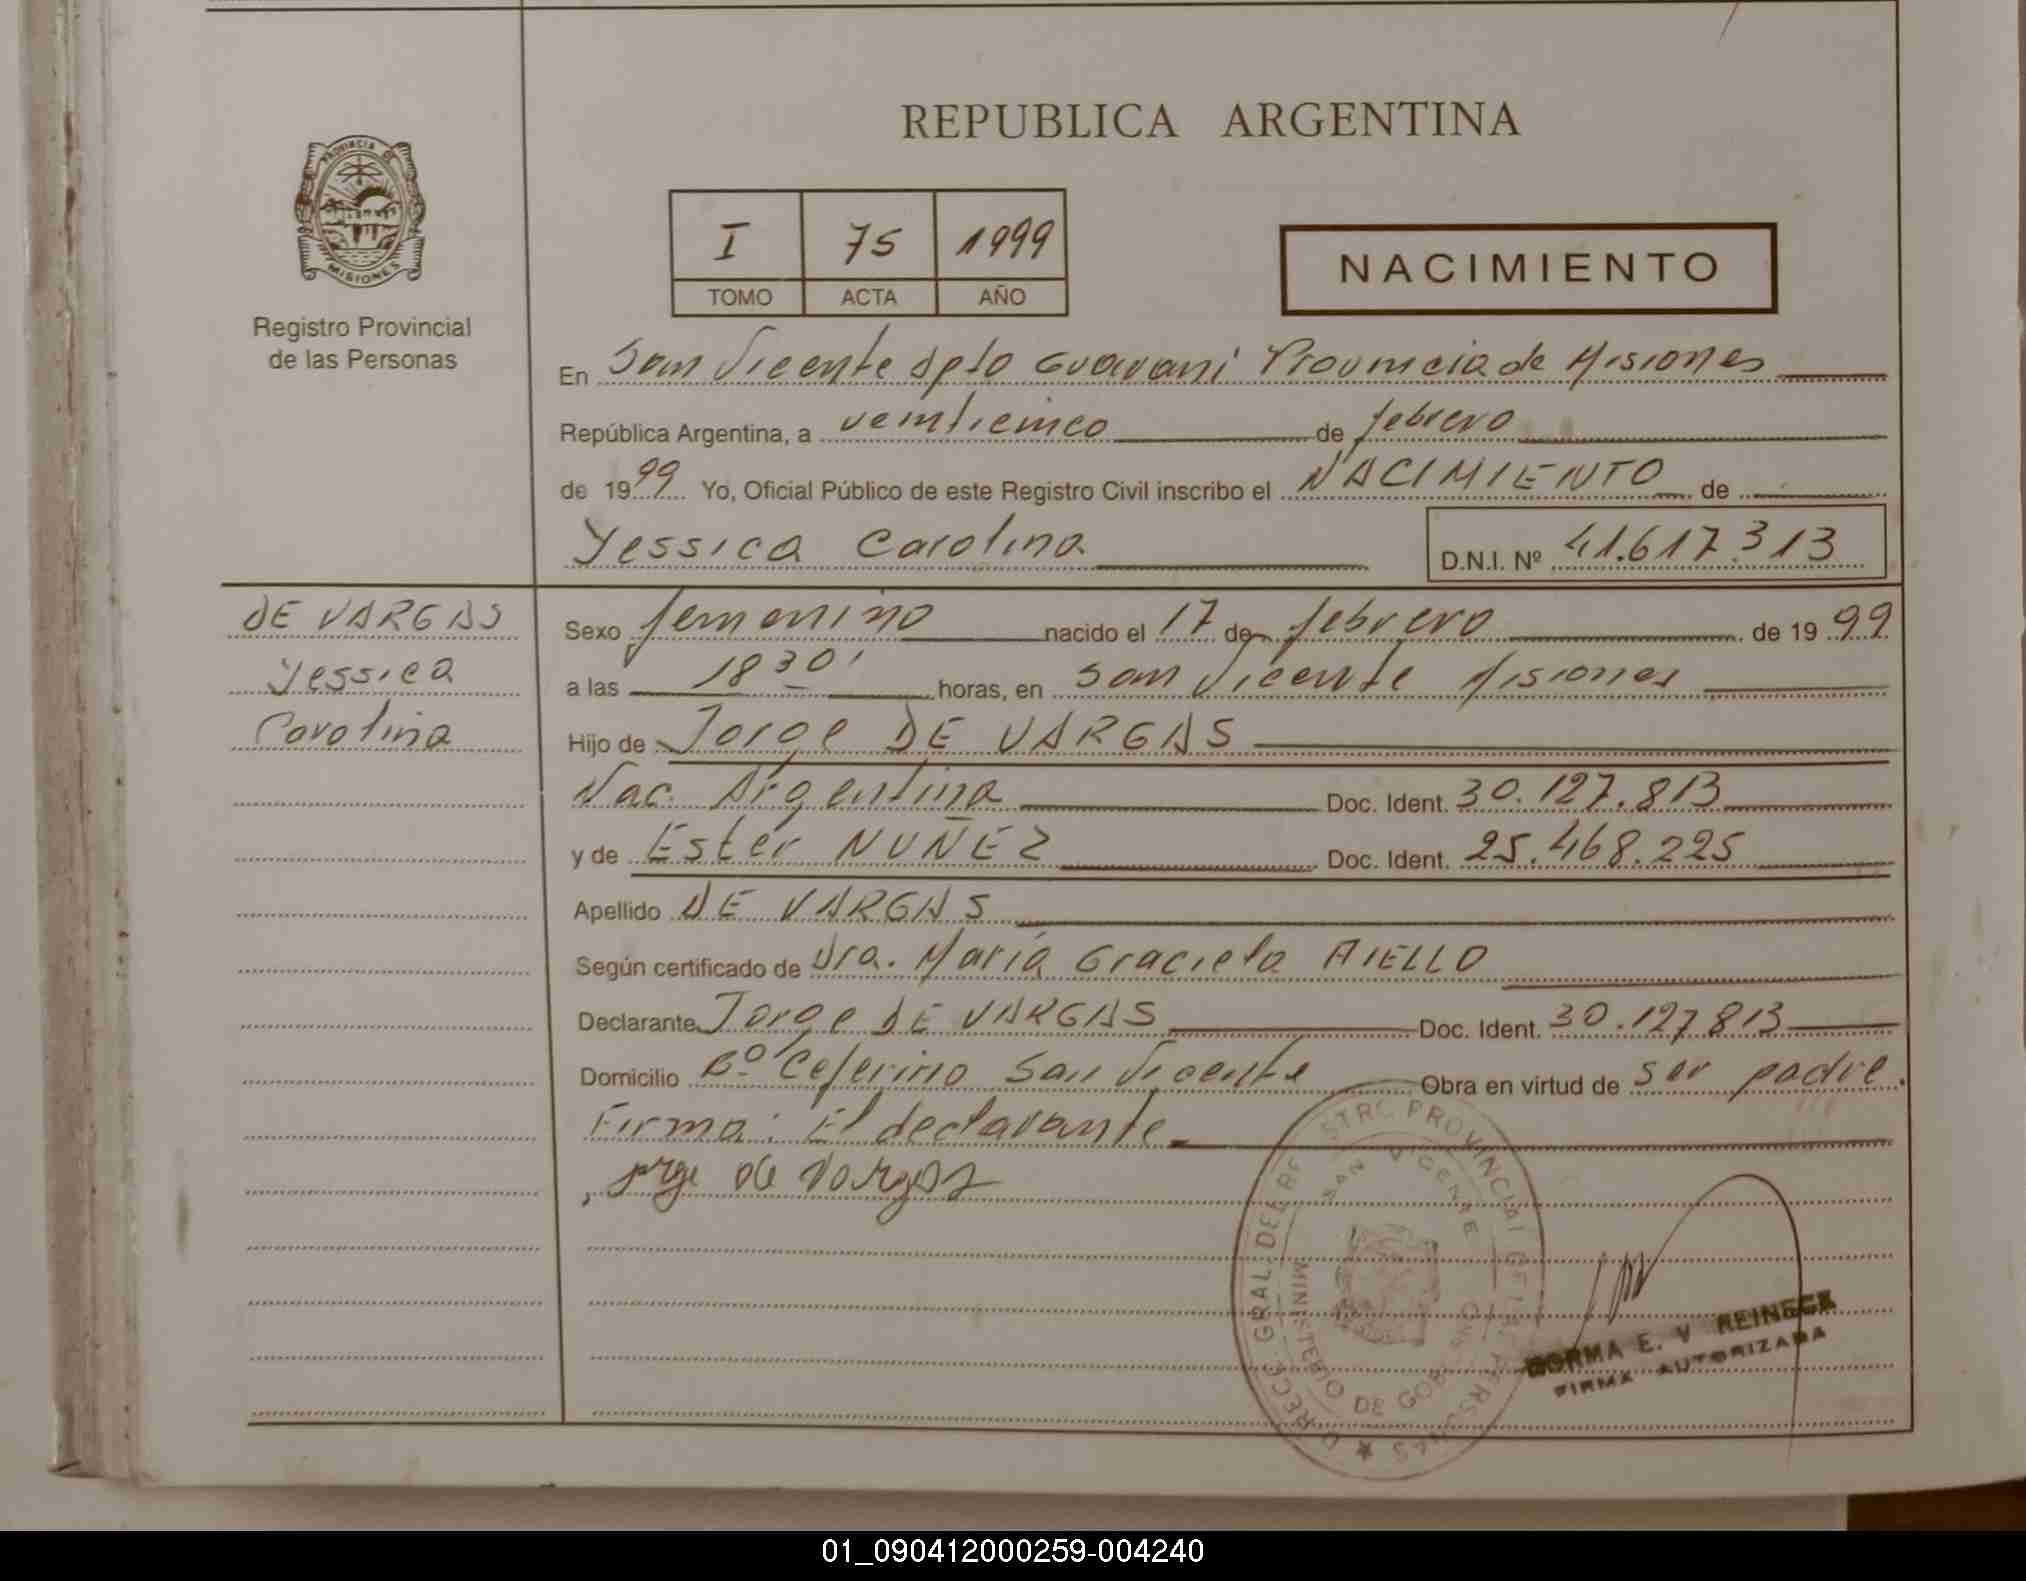 REPUBLICA ARGENTINA
PROVINCIA DE
MISIONES
Registro Provincial
de las Personas
I 75 1999
TOMO ACTA AÑO
NACIMIENTO
En San Vicente Dpto Guarani Provincia de Misiones
República Argentina, a veinticinco de febrero
de 1999 Yo, Oficial Público de este Registro Civil inscribo el NACIMIENTO de
Yessica Carolina
D.N.I. Nº 41.617.313
DE VARGAS
Yessica
Carolina
Sexo femenino nacido el 17 de febrero de 1999
a las 18 30' horas, en San Vicente Misiones
Hijo de Jorge DE VARGAS
Nac. Argentina Doc. Ident. 30.127.813
y de Ester NUÑEZ Doc. Ident. 25.468.225
Apellido DE VARGAS
Según certificado de Dra. María Graciela AIELLO
Declarante Jorge DE VARGAS Doc. Ident. 30.127813
Domicilio Bº Ceferino San Vicente Obra en virtud de ser padre.
Firma: El declarante
Jorge de Vargas
SAN VICENTE
MINISTERIO DE
NORMA E. V. REINECK
FIRMA AUTORIZADA
01_090412000259-004240